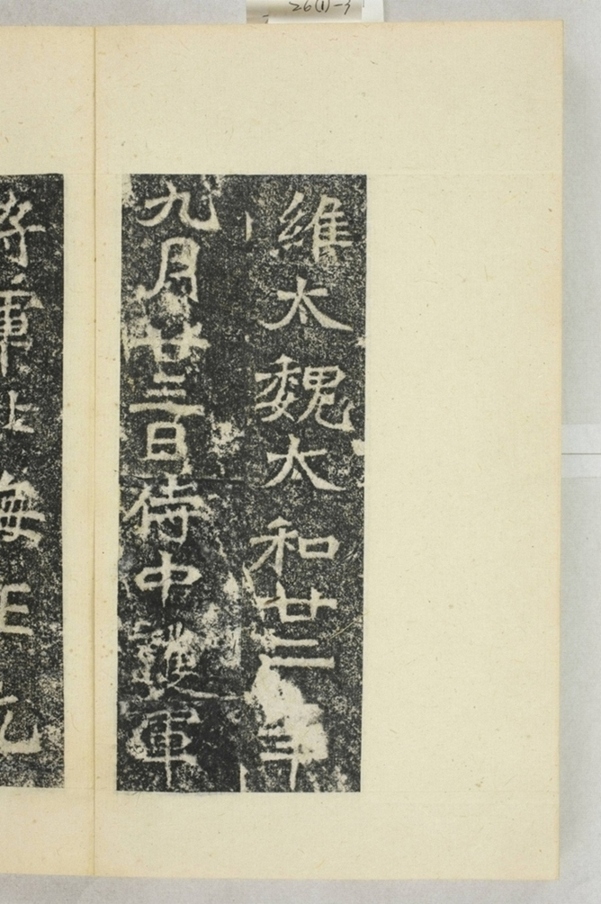 26(1)-3
維太魏太和廿二年
九月廿三日侍中護軍
將軍北海王元